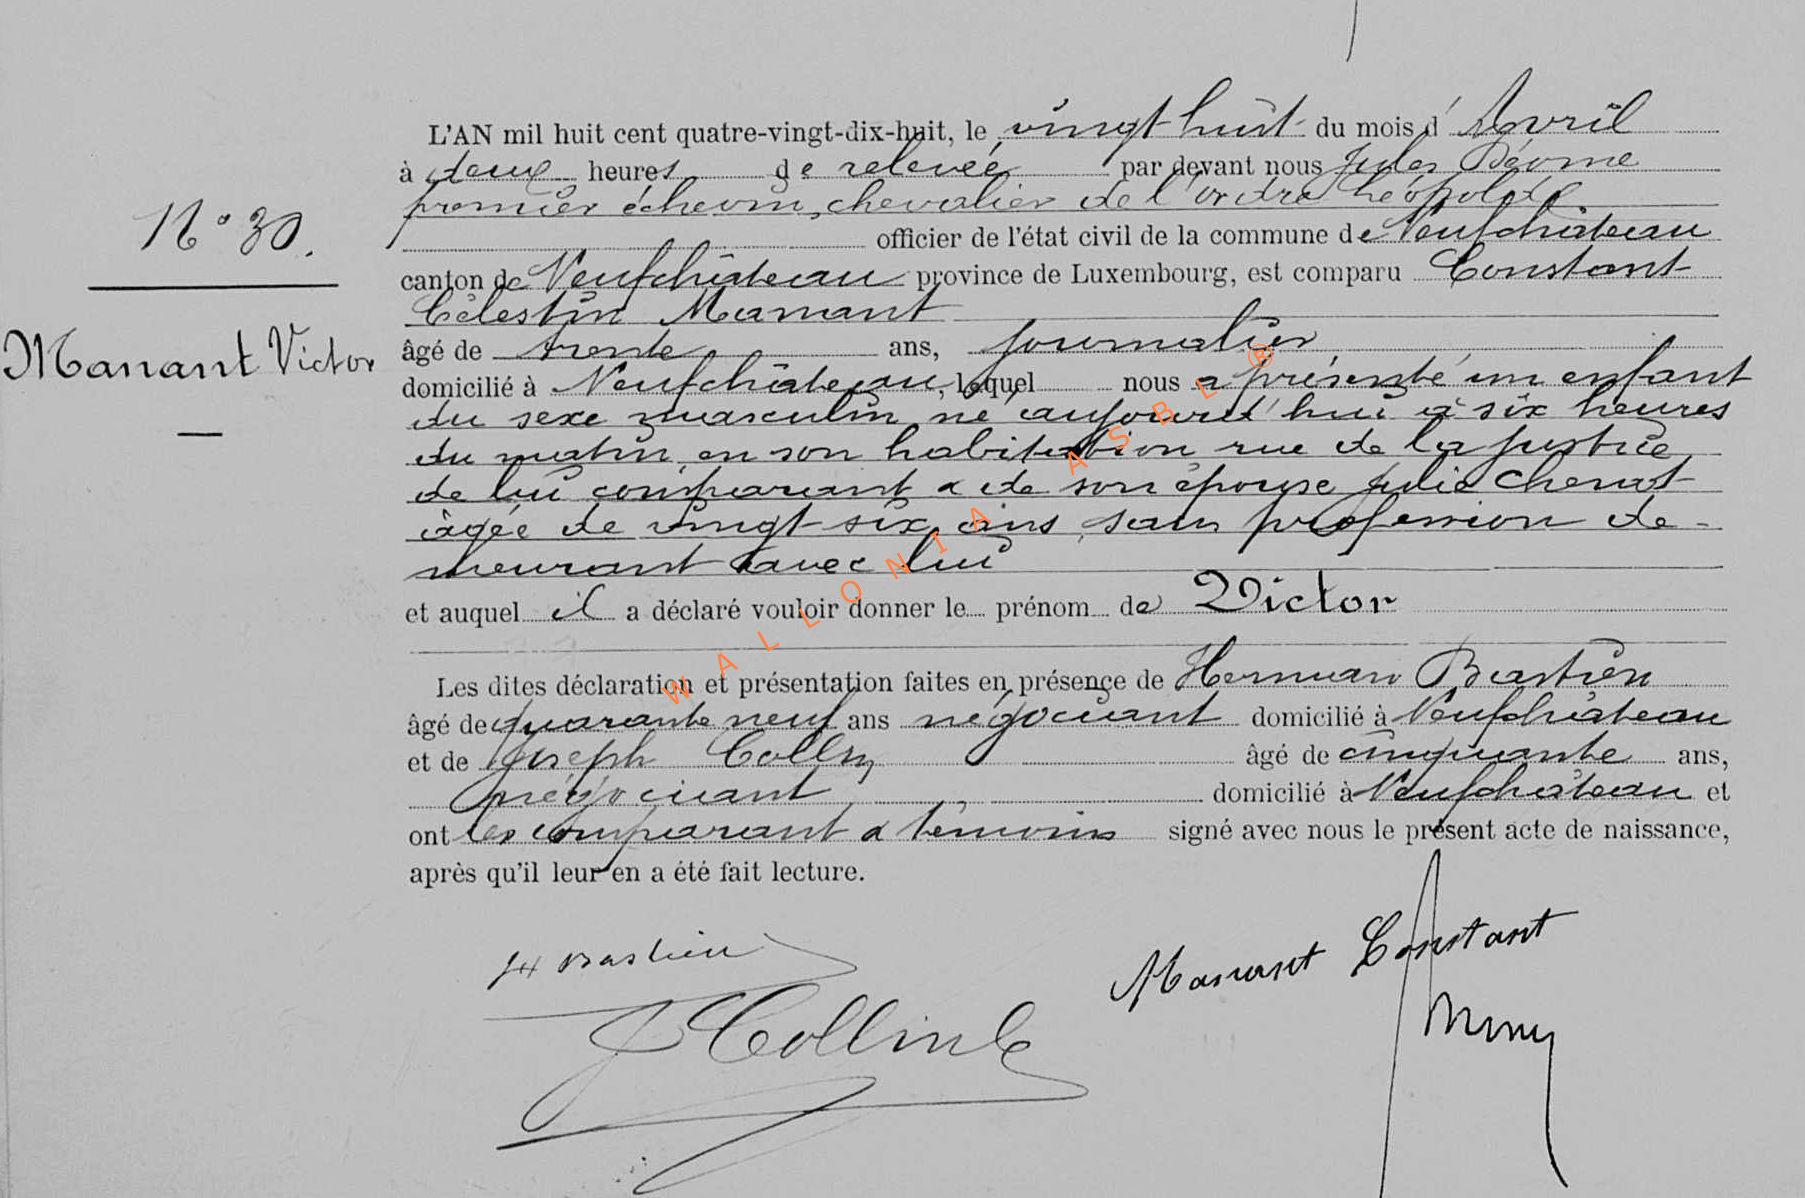 L'AN mil huit cent quatre-vingt-dix-huit, le vingt-huit du mois d'Avril
à deux heures de relevée par devant nous Jules
premier échevin, chevalier de l'ordre Léopold,
N° 30.
officier de l'état civil de la commune de Neufchâteau
canton de Neufchâteau province de Luxembourg, est comparu Constant
Célestin Manant
Manant Victor
âgé de trente ans, journalier
domicilié à Neufchâteau, lequel nous a présenté un enfant
du sexe masculin né aujourd'hui à six heures
du matin, en son habitation rue de la justice
de lui comparant & de son épouse Julie Chenot
âgée de vingt-six ans, sans profession de-
meurant avec lui
et auquel il a déclaré vouloir donner le prénom de Victor
Les dites déclaration et présentation faites en présence de Herman Bastien
âgé de quarante neuf ans négociant domicilié à Neufchâteau
et de Joseph Collin âgé de cinquante ans,
négociant domicilié à Neufchâteau et
ont les comparant & témoins signé avec nous le présent acte de naissance,
après qu'il leur en a été fait lecture.
H Bastien
Manant Constant
J Collin
WALLONIA ASBL ®